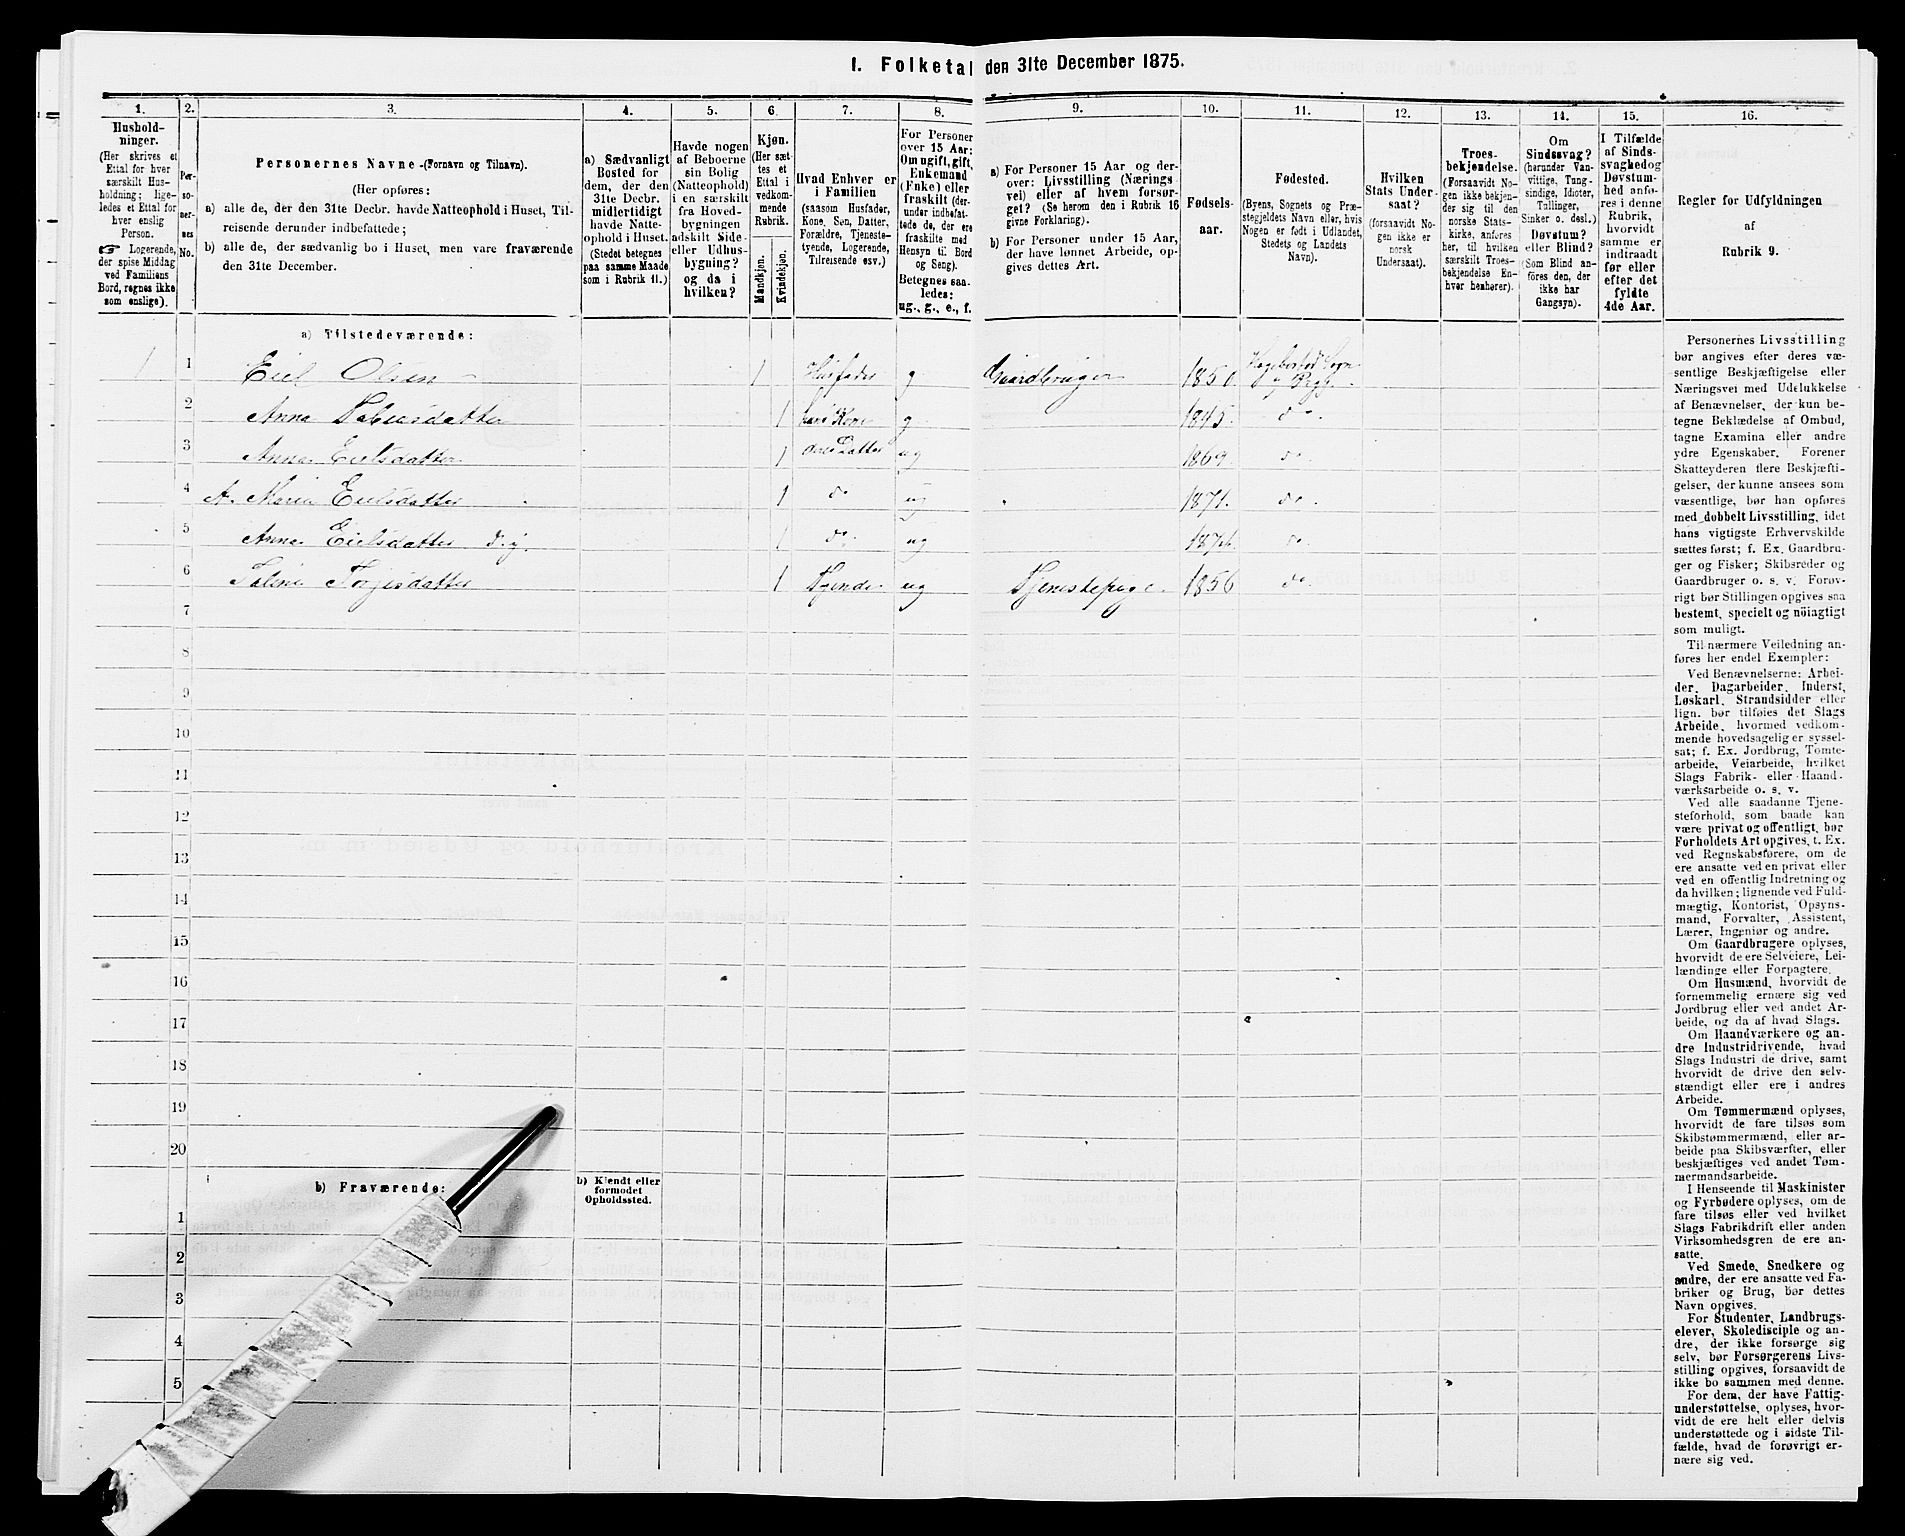 1. Folketal den 31te December 1875.
1. 2. 3. 4. 5. 6. 7. 8. 9. 10. 11. 12. 13. 14. 15. 16.
Hushold-
ninger.
(Her skrives et
Ettal for hver
særskilt Hus-
holdning; lige-
ledes et Ettal for
hver enslig
Person.
☞ Logerende,
der spise Middag
ved Familiens
Bord, regnes ikke
som enslige).
Per-
so-
ner-
nes
No.
Personernes Navne (Fornavn og Tilnavn).
(Her opføres:
a) alle de, der den 31te Decbr. havde Natteophold i Huset, Til-
reisende derunder indbefattede;
b) alle de, der sædvanlig bo i Huset, men vare fraværende
den 31te December.
a) Sædvanligt
Bosted for
dem, der den
31te Decbr.
midlertidigt
havde Natte-
ophold i Huset.
(Stedet betegnes
paa samme Maade
som i Rubrik 11.)
Havde nogen
af Beboerne
sin Bolig
(Natteophold)
i en særskilt
fra Hoved-
bygningen
adskilt Side-
eller Udhus-
bygning?
og da i
hvilken?
Kjøn.
(Her sæt-
tes et
Ettal i
vedkom-
mende
Rubrik.
Mandkjøn.
Kvindekjøn.
Hvad Enhver er
i Familien
(saasom Husfader,
Kone, Søn, Datter,
Forældre, Tjeneste-
tyende, Logerende,
Tilreisende osv.)
For Personer
over 15 Aar:
Om ugift, gift,
Enkemand
(Enke) eller
fraskilt (der-
under indbefat-
tede de, der ere
fraskilte med
Hensyn til Bord
og Seng).
Betegnes saa-
ledes:
ug., g., e., f.
a) For Personer 15 Aar og der-
over: Livsstilling (Nærings-
vei) eller af hvem forsør-
get? (Se herom den i Rubrik 16
givne Forklaring).
b) For Personer under 15 Aar,
der have lønnet Arbeide, op-
gives dettes Art.
Fødsels-
aar.
Fødested.
(Byens, Sognets og Præ-
stegjeldets Navn eller, hvis
Nogen er født i Udlandet,
Stedets og Landets
Navn).
Hvilken
Stats Under-
saat?
(forsaavidt No-
gen ikke er
norsk
Undersaat).
Troes-
bekjendelse.
(Forsaavidt No-
gen ikke bekjen-
der sig til den
norske Stats-
kirke, anføres
her, til hvilken
særskilt Troes-
bekjendelse En-
hver henhører).
Om
Sindssvag?
(herunder Van-
vittige, Tung-
sindige, Idioter,
Tullinger,
Sinker o. desl.)
Døvstum?
eller Blind?
(Som Blind an-
føres den, der
ikke har
Gangsyn).
I Tilfælde
af Sinds-
svaghed og
Døvstum-
hed anfø-
res i denne
Rubrik,
hvorvidt
samme er
indtraadt
før eller
efter det
fyldte
4de Aar.
Regler for Udfyldningen
af
Rubrik 9.
a) Tilstedeværende:
1 1 Eiel Olsen 1 Husfader g Gaardbruger 1850. Hægebostad Sogn
og Prgj.
2 Anna Tobiasdatter 1 hans Kone g 1845. do.
3 Anna Eielsdatter 1 deres Datter ug 1869. do.
4 A. Maria Eielsdatter 1 do ug 1871. do.
5 Anna Eielsdatter d. y. 1 do. ug 1874. do
6 Torjesdatter 1 Tyende ug Tjenestepige. 1856 do.
7
8
9
10
11
12
13
14
15
16
17
18
19
20
b) Fraværende:
b) Kjendt eller
formodet
Opholdssted.
1
2
3
4
5
Personernes Livsstilling
bør angives efter deres væ-
sentlige Beskjæftigelse eller
Næringsvei med Udelukkelse
af Benævnelser, der kun be-
tegne Beklædelse af Ombud,
tagne Examina eller andre
ydre Egenskaber. Forener
Skatteyderen flere Beskjæfti-
gelser, der kunne ansees som
væsentlige, bør han opføres
med dobbelt Livsstilling, idet
hans vigtigste Erhvervskilde
sættes først; f. Ex. Gaardbru-
ger og Fisker; Skibsreder og
Gaardbruger o. s. v. Forøv-
rigt bør Stillingen opgives saa
bestemt, specielt og nöiagtigt
som muligt.
Til nærmere Veiledning an-
føres her endel Exempler:
Ved Benævnelserne: Arbei-
der, Dagarbeider, Inderst,
Løskarl, Strandsidder eller
lign. bør tilføies det Slags
Arbeide, hvormed vedkom-
mende hovedsagelig er syssel-
sat; f. Ex. Jordbrug, Tomte-
arbeide, Veiarbeide, hvilket
Slags Fabrik- eller Haand-
værksarbeide o. s. v.
Ved alle saadanne Tjene-
steforhold, som baade kan
være privat og offentligt, bør
Forholdets Art opgives, f. Ex.
ved Regnskabsførere, om de
ere ansatte ved en privat eller
ved en offentlig Indretning og
da hvilken; lignende ved Fuld-
mægtig, Kontorist, Opsyns-
mand, Forvalter, Assistent,
Lærer, Ingeniør og andre.
Om Gaardbrugere oplyses,
hvorvidt de ere Selveiere, Lei-
lændinge eller Forpagtere.
Om Husmænd, hvorvidt de
fornemmelig ernære sig ved
Jordbrug eller ved andet Ar-
beide, og da af hvad Slags.
Om Haandværkere og an-
dre Industridrivende, hvad
Slags Industri de drive, samt
hvorvidt de drive den selv-
stændigt eller ere i andres
Arbeide.
Om Tømmermænd oplyses,
hvorvidt de fare tilsøs som
Skibstømmermænd, eller ar-
beide paa Skibsværfter, eller
beskjæftiges ved andet Tøm-
mermandsarbeide.
I Henseende til Maskinister
og Fyrbødere oplyses, om de
fare tilsøs eller ved hvilket
Slags Fabrikdrift eller anden
Virksomhedsgren de ere an-
satte.
Ved Smede, Snedkere og
andre, der ere ansatte ved Fa-
briker og Brug, bør dettes
Navn opgives.
For Studenter, Landbrugs-
elever, Skoledisciple og an-
dre, der ikke forsørge sig
selv, bør Forsørgerens Livs-
stilling opgives, forsaavidt de
ikke bo sammen med denne.
For dem, der have Fattig-
understøttelse, oplyses, hvor-
vidt de ere helt eller delvis
understøttede og i sidste Til-
fælde, hvad de forøvrigt er-
nære sig ved.